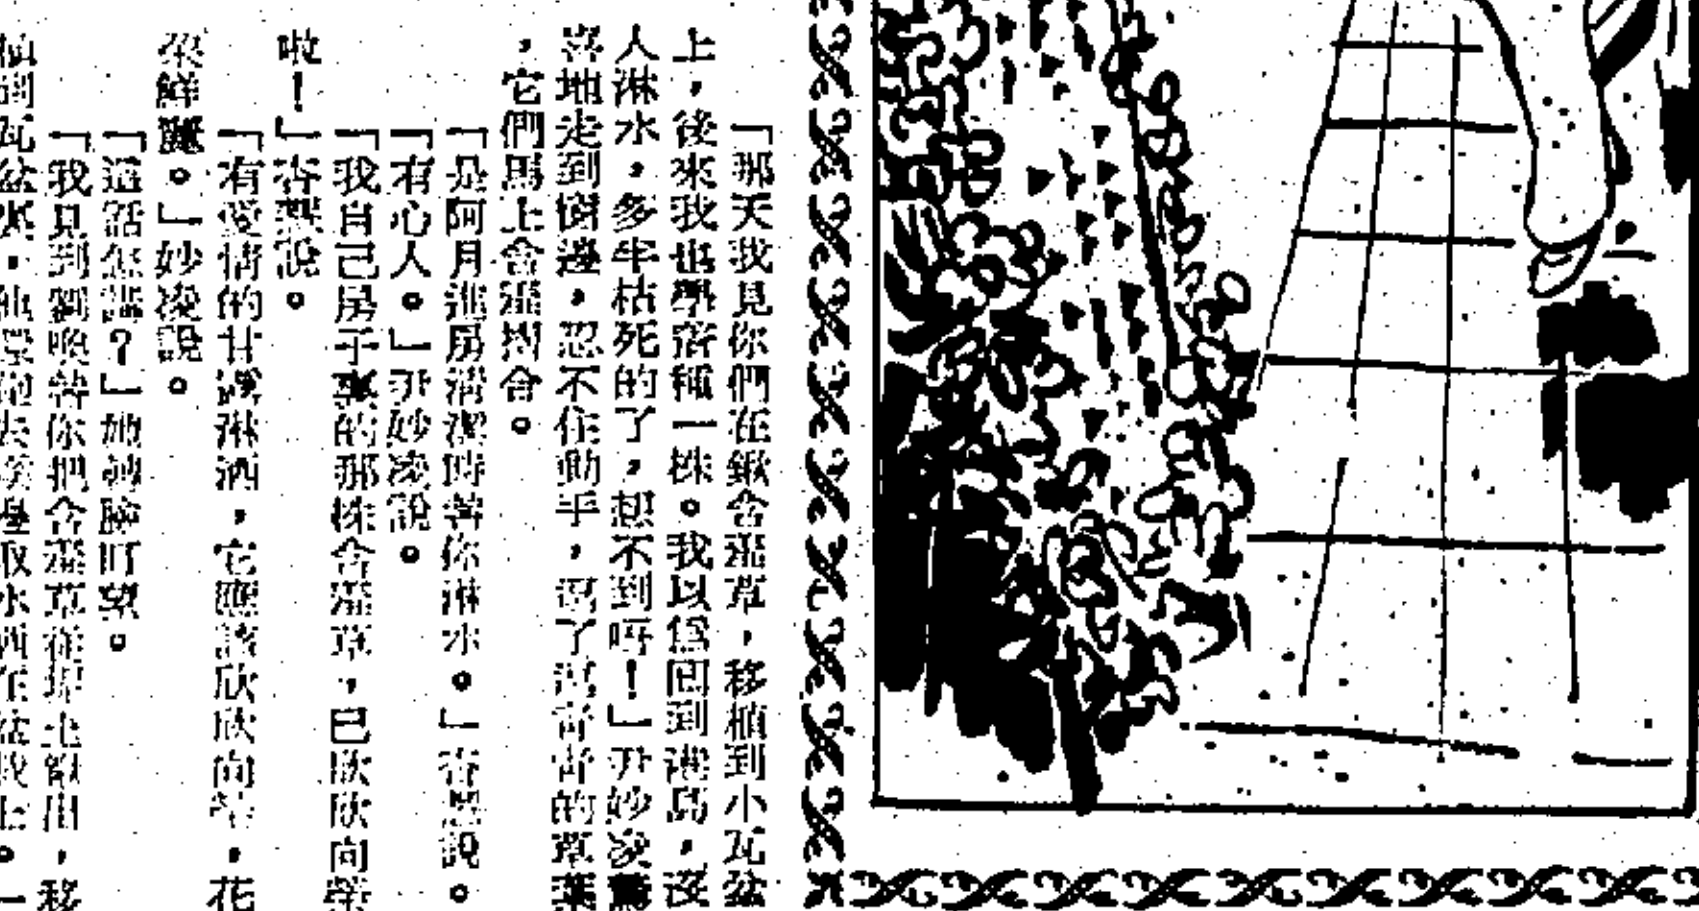 「那天我見你們在鍬含羞草，移植到小瓦盆
上，後來我也學着種一株。我以爲回到港島，沒
人淋水，多半枯死的了，想不到呀！」尹妙凌驚
喜地走到窗邊，忍不住動手，逗了逗青青的草葉
，它們馬上含羞摺合。
「是阿月進房清潔時替你淋水。」杏慧說。
「有心人。」尹妙凌說。
「我自己房子裏的那株含羞草，已欣欣向榮
啦！」杏慧說。
「有愛情的甘露淋洒，它應該欣欣向榮，花
朵鮮麗。」妙凌說。
「這話怎講？」她轉臉盯望。
「我見到劉喚替你把含羞草從坭土鍬出，移
植到瓦盆裏，他還跑去 邊取水洒在盆坭上。一